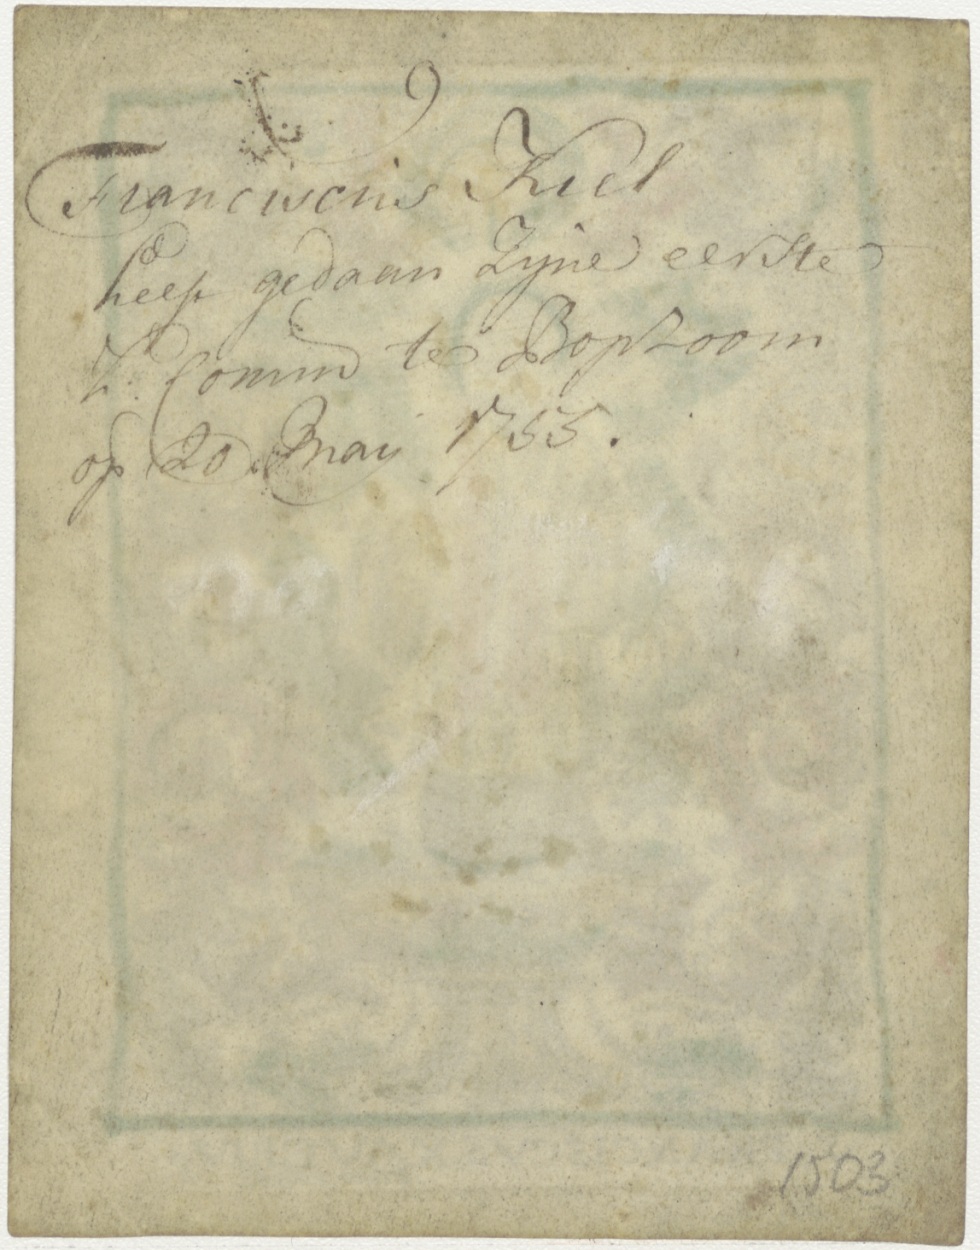 Franciscus Kiel
heeft gedaan Zyne eerste
H: Comm te Bopzoom
op 20 May 1755.
1503